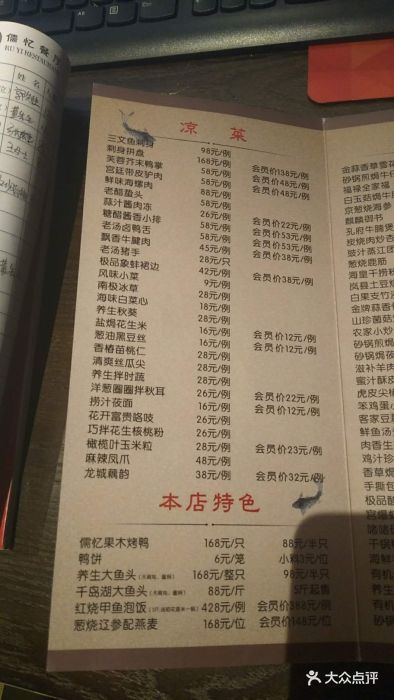 儒忆餐厅
RU YI RESTAURANT
姓名
凉菜
三文鱼刺身 98元/例
刺身拼盘 168元/例 会员价138元/例
芙蓉芥末鸭掌 58元/例 会员价48元/例
宫廷带皮驴肉 58元/例 会员价48元/例
鲜味海螺肉 58元/例
老醋蛰头 58元/例
蒜汁酱肉冻 26元/例 会员价22元/例
糖醋酱香小排 58元/例 会员价53元/例
老汤卤鸭舌 58元/例 会员价53元/例
飘香牛腱肉 45元/例 会员价38元/例
老汤猪手 28元/只
极品象蚌裙边 42元/例 会员价38元/例
风味小菜 9元/例
南极冰草 28元/例
海味白菜心 28元/例
养生秋葵 28元/例
盐焗花生米 16元/例 会员价12元/例
葱油黑豆丝 16元/例 会员价12元/例
香椿苗桃仁 28元/例
清爽丝瓜尖 28元/例
养生拌时蔬 28元/例
洋葱圈圈拌秋耳 26元/例 会员价22元/例
捞汁莜面 16元/例 会员价12元/例
花开富贵咯吱 26元/例
巧拌花生核桃粉 26元/例
橄榄叶玉米粒 28元/例 会员价23元/例
麻辣凤爪 48元/例
龙城藕韵 38元/例 会员价32元/例
本店特色
儒忆果木烤鸭 168元/只 88元/半只
鸭饼 6元/笼 小料3元/位
养生大鱼头 168元/整只 98元/半只
千岛湖大鱼头 88元/斤 5斤起售
红烧甲鱼泡饭 428元/例 会员价388元/例
葱烧辽参配燕麦 168元/位 会员价148元/位
金蒜香草雪花
砂锅煎焗牛仔
福禄全家福
白玉菇焗牛
京葱烧海参
麒麟御书
孔府牛腩煲
炭烧肉炒杏
豉汁蒸江团
葱烧鹿筋
海皇千捞粉
岚县土豆烧
白果支竹浸
金牌蒜香骨
山珍菌菇
农家小炒
砂锅焗酱
滋补羊肉
蜜汁酥皮
虎皮尖椒
笨鸡蛋小
客家豆腐
鲜鱼汤
肉香生
鸡汁珍
香草焗
手撕包
极品酸
宫爆
嗜嗜
干锅
海鲜
有机
有机
砂锅
大众点评